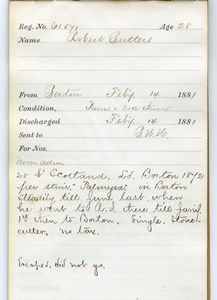 Reg. No. 61.571 Age 28
Name Robert Butters
From Boston Feby 14 1881
Condition,
Discharged Feby 14 1881
Sent to S.W.H.
For Nos.
28 N Scotland. Ld. Boston 1872
per stmr. "Palmyra" in Boston
Steadily till June last, when
he went to R.I. there till Jany
1st then to Boston. Single. Stone
cutter, no tax.
Escaped, did not go.